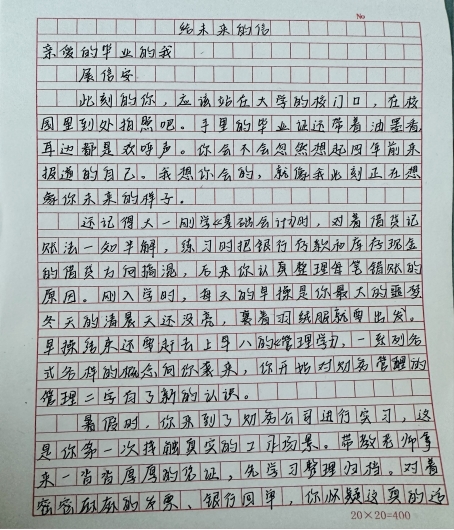 No
给未来的信
亲爱的毕业的我
展信安
此刻的你，应该站在大学的校门口，在校
园里到处拍照吧。手里的毕业证还带着油墨香，
耳边都是欢呼声。你会不会忽然想起四年前来
报道的自己。我想你会的，就像我此刻正在想
象你未来的样子。
还记得大一刚学《基础会计》时，对着借贷记
账法一知半解，练习时把银行存款和库存现金
的借贷方向搞混，后来你认真整理每笔错账的
原因。刚入学时，每天的早操是你最大的噩梦
冬天的清晨天还没亮，裹着羽绒服就要出发。
早操结束还要赶去上早八的《管理学》，一系列各
式各样的概念向你袭来，你开始对财务管理的
管理二字有了新的认识。
暑假时，你来到了财务公司进行实习，这
是你第一次接触真实的工作场景。带教老师拿
来一沓沓厚厚的凭证，先学习整理归档。对着
密密麻麻的发票、银行回单，你怀疑这真的适
20×20=400